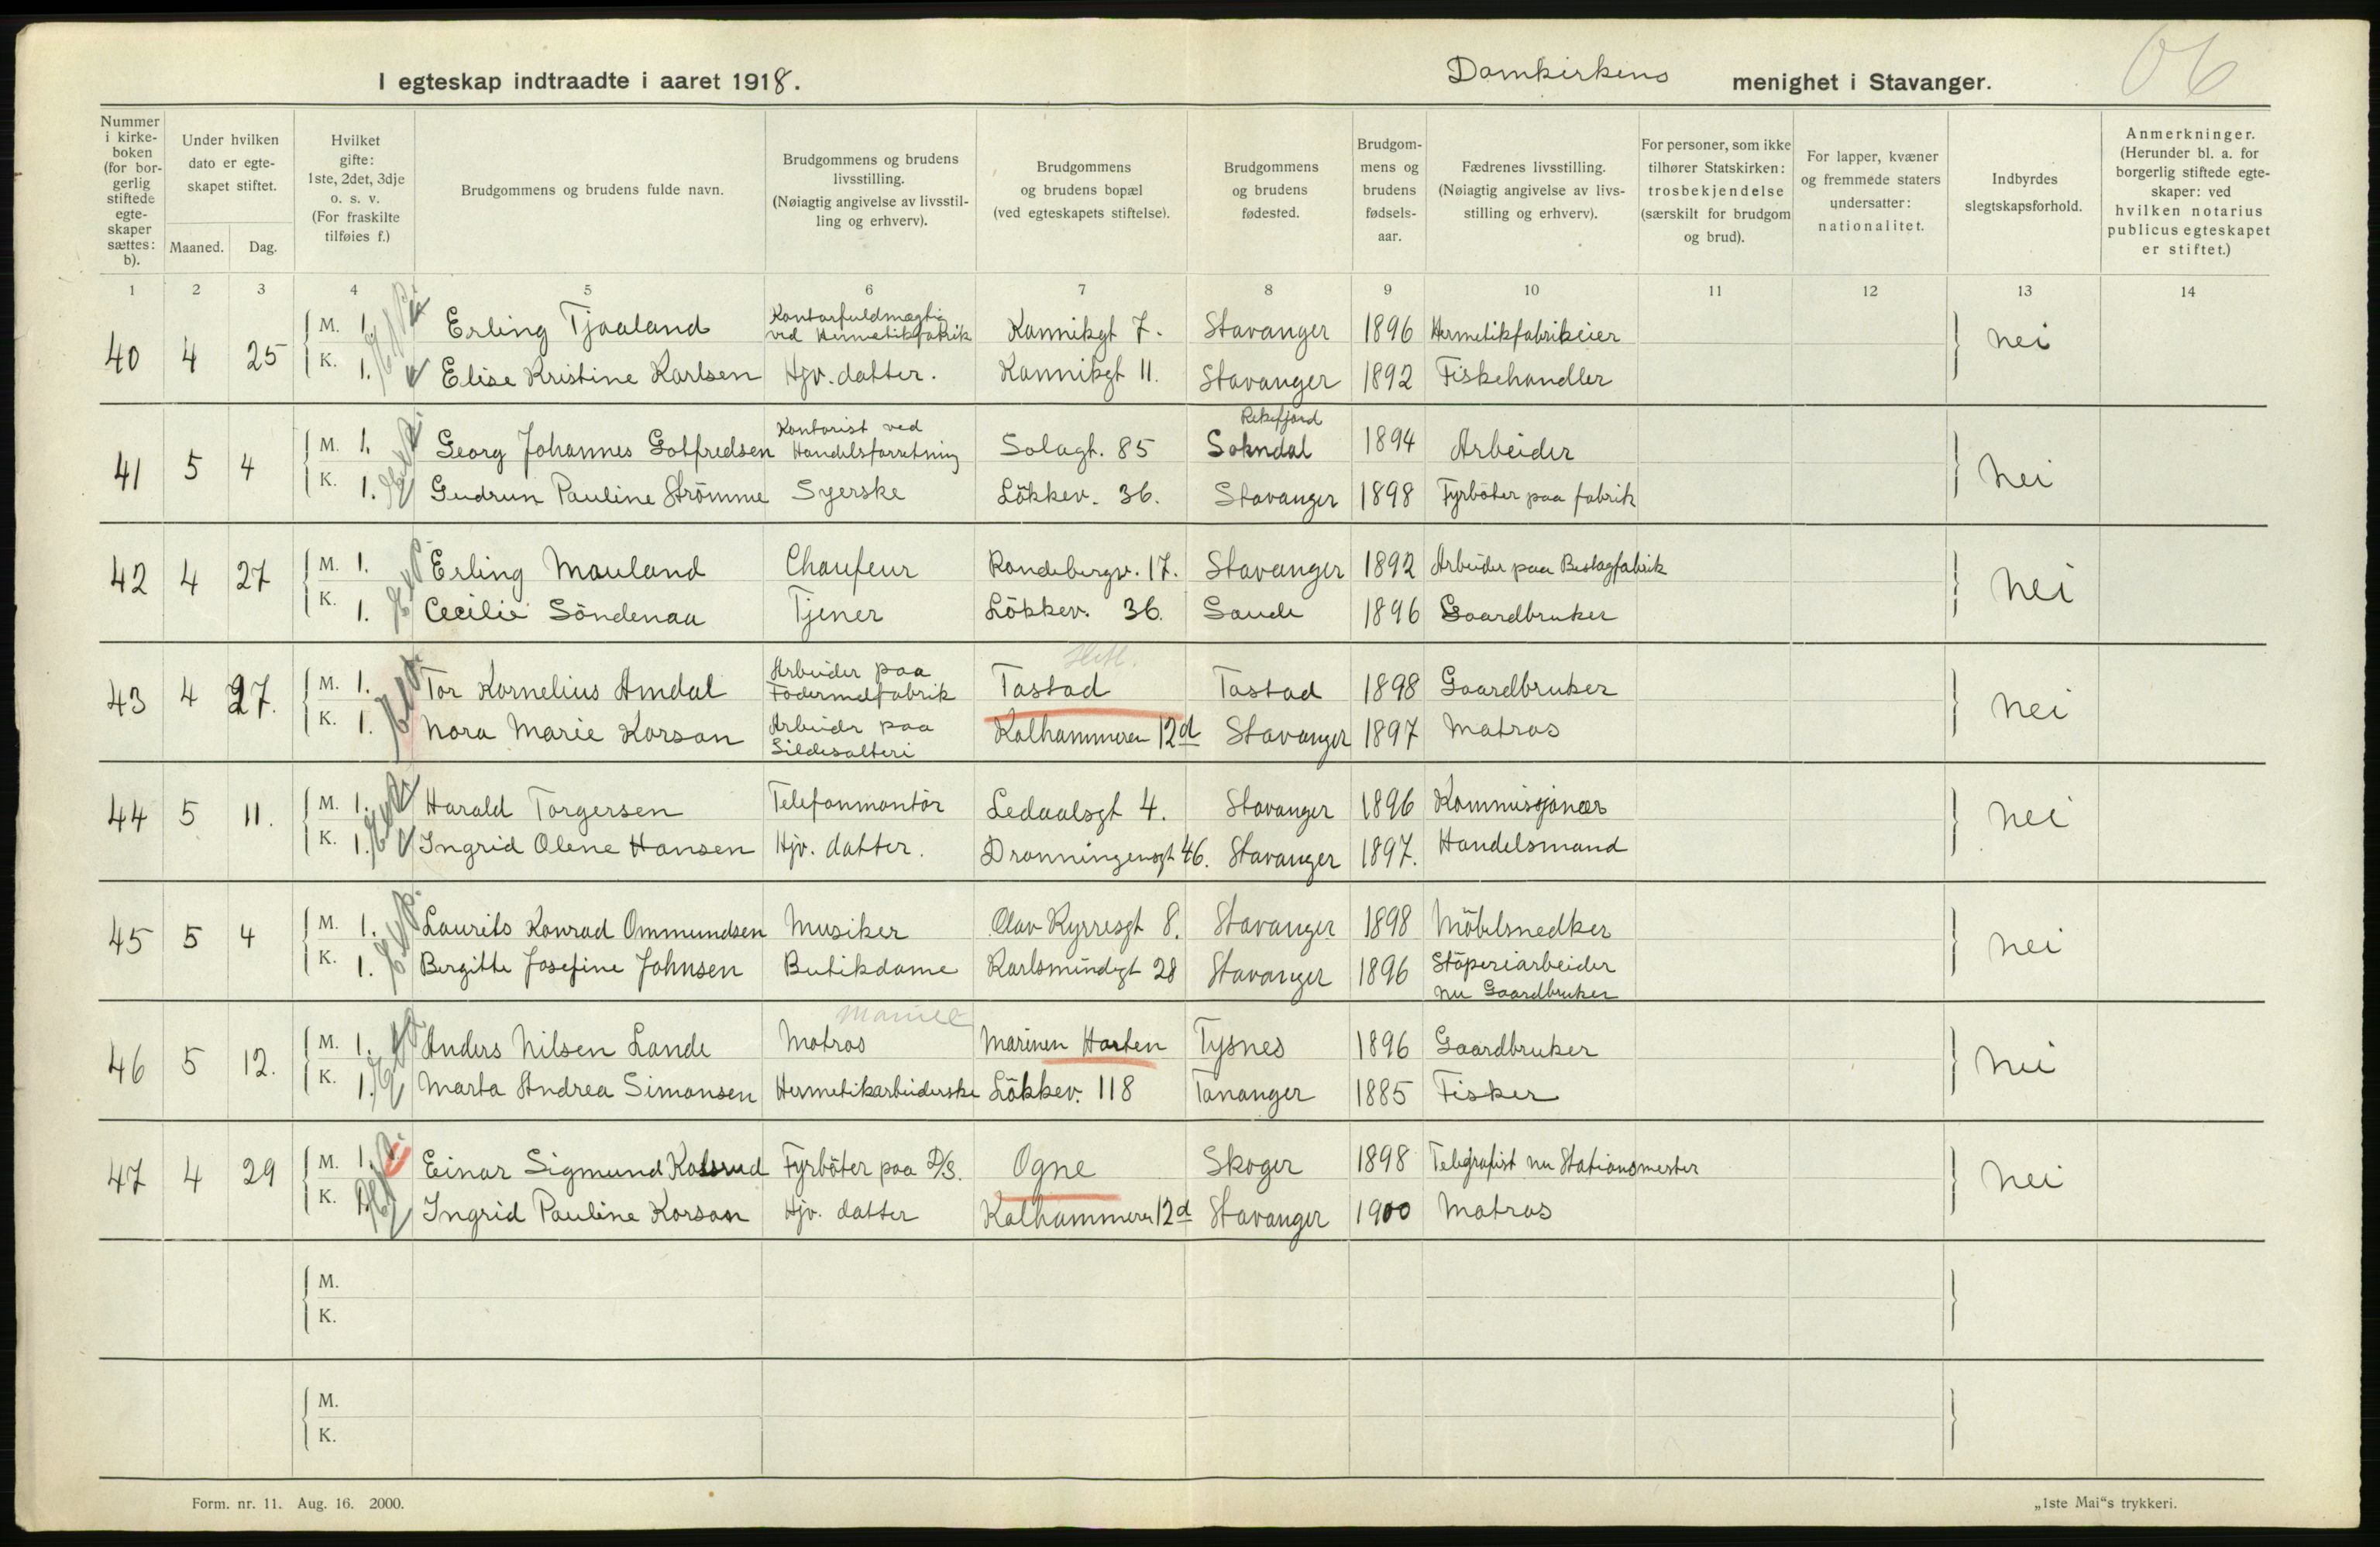 I egteskap indtraadte i aaret 1918. Domkirkens menighet i Stavanger. 06
Nummer i kirke-boken (for bor-gerlig stiftede egte-skaper sættes: b).
Under hvilken dato er egte-skapet stiftet.
Maaned. Dag.
Hvilket gifte: 1ste, 2det, 3dje o. s. v. (For fraskilte tilføies f.)
Brudgommens og brudens fulde navn.
Brudgommens og brudens livsstilling. (Nøiagtig angivelse av livsstil-ling og erhverv).
Brudgommens og brudens bopæl (ved egteskapets stiftelse).
Brudgommens og brudens fødested.
Brudgom-mens og brudens fødsels-aar.
Fædrenes livsstilling. (Nøiagtig angivelse av livs-stilling og erhverv).
For personer, som ikke tilhører Statskirken: trosbekjendelse (særskilt for brudgom og brud).
For lapper, kvæner og fremmede staters undersatter: nationalitet.
Indbyrdes slegtskapsforhold.
Anmerkninger. (Herunder bl. a. for borgerlig stiftede egte-skaper: ved hvilken notarius publicus egteskapet er stiftet.)
1 2 3 4 5 6 7 8 9 10 11 12 13 14
40 4 25 M. 1. Erling Tjaaland Kontorfuldmægtig ved Hermetikfabrik Kannikgt 7. Stavanger 1896 Hermetikfabrikeier nei
K. 1. Elise Kristine Karlsen Hjv. datter. Kannikgt 11. Stavanger 1892 Fiskehandler
41 5 4 M. 1. Georg Johannes Gotfredsen Kontorist ved Handelsforretning Solagt. 85 Rekefjord Sokndal 1894 Arbeider nei
K. 1. Gudrun Pauline Strömme Syerske Lökkev. 36. Stavanger 1898 Fyrböter paa fabrik
42 4 27 M. 1. Erling Mauland Chaufeur Randebergv. 17. Stavanger 1892 Arbeider paa Beslagfabrik nei
K. 1. Cecilie Söndenaa Tjener Lökkev. 36. Saude 1896 Gaardbruker
43 4 27. M. 1. Tor Kornelius Amdal Arbeider paa Fodermelfabrik Tastad Tastad 1898 Gaardbruker nei
K. 1. Nora Marie Korsan Arbeider paa Sildesalteri Kalhammeren 12d Stavanger 1897 Matros
44 5 11. M. 1. Harald Torgersen Telefonmontör Ledaalsgt 4. Stavanger 1896 Kommissjonær nei
K. 1. Ingrid Olene Hansen Hjv. datter. Dronningensgt 46. Stavanger 1897. Handelsmand
45 5 4 M. 1. Laurits Konrad Ommundsen Musiker Olav Kyrresgt 8. Stavanger 1898 Möbelsnedker nei
K. 1. Bergitte Josefine Johnsen Butikdame Karlsmindegt 28 Stavanger 1896 Stöperiarbeider nu Gaardbruker
46 5 12. M. 1. Anders Nilsen Lande Matros Marinen Horten Tysnes 1896 Gaardbruker nei
K. 1. Marta Andrea Simonsen Hermetikarbeiderske Lökkev. 118 Tananger 1885 Fisker
47 4 29 M. 1. Einar Sigmund Kalsrud Fyrböter paa D/S. Ogne Skoger 1898 Telegrafist nu Stationsmester nei
K. 1. Ingrid Pauline Korsan Hjv. datter Kalhammeren 12d Stavanger 1900 Matros
M.
K.
M.
K.
Form. nr. 11. Aug. 16. 2000. „1ste Mai“s trykkeri.